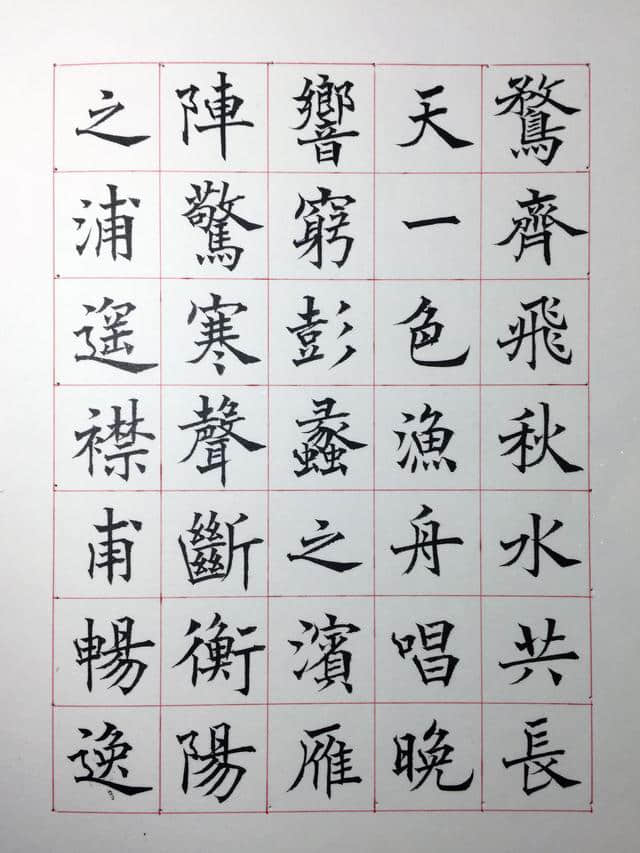 鶩齊飛秋水共長
天一色漁舟唱晚
響窮彭蠡之濱雁
陣驚寒聲斷衡陽
之浦遥襟甫暢逸